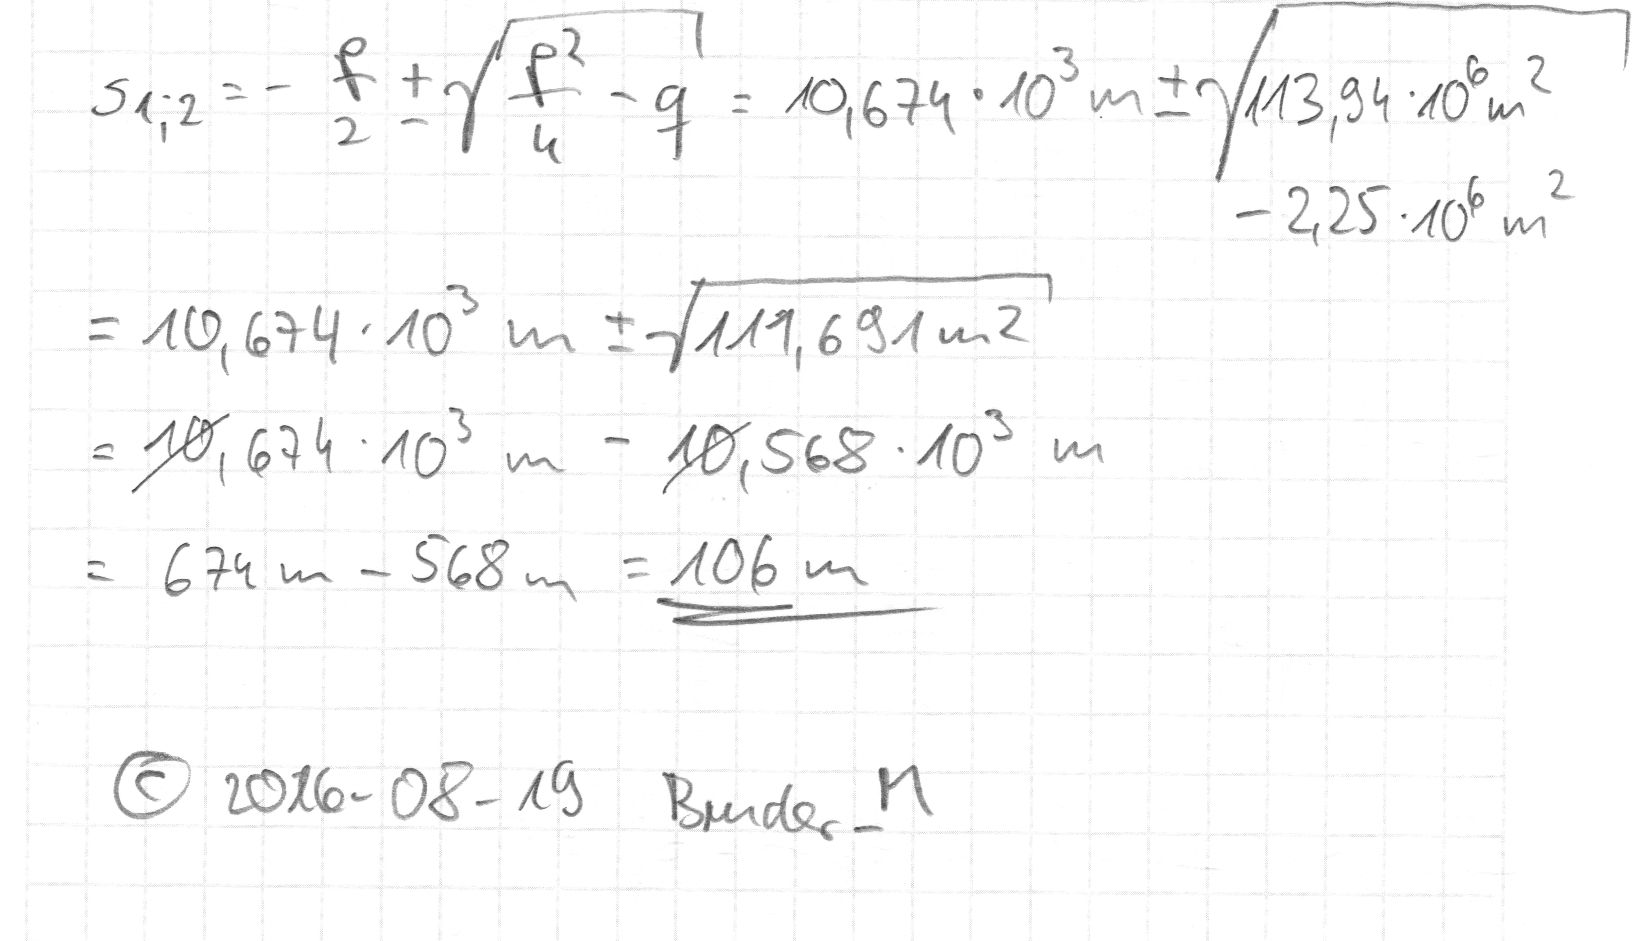 s₁;₂ = - p/2 ± √(p²/4 - q) = 10,674·10³ m ± √(113,94·10⁶ m²
- 2,25·10⁶ m²)
= 10,674·10³ m ± √(111,691 m²)
= 10,674·10³ m - 10,568·10³ m
= 674 m - 568 m = 106 m
© 2016-08-19 Bruder_M